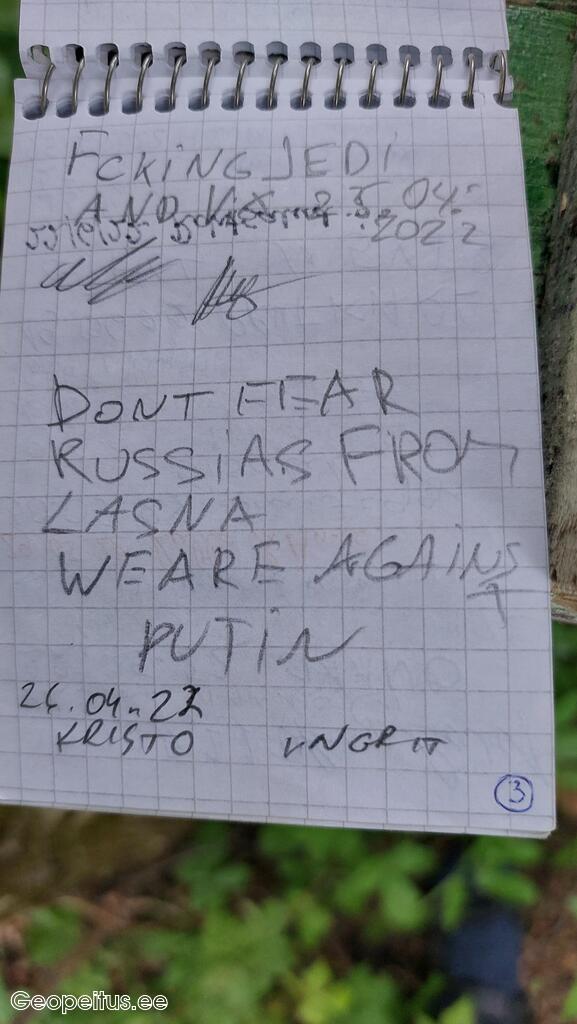 FCKING JEDI
AND
04.
2022
DONT FEAR
RUSSIAS FROM
LASNA
WE ARE AGAINST
PUTIN
26.04.22
KRISTO INGRIT
3
Geopeitus.ee